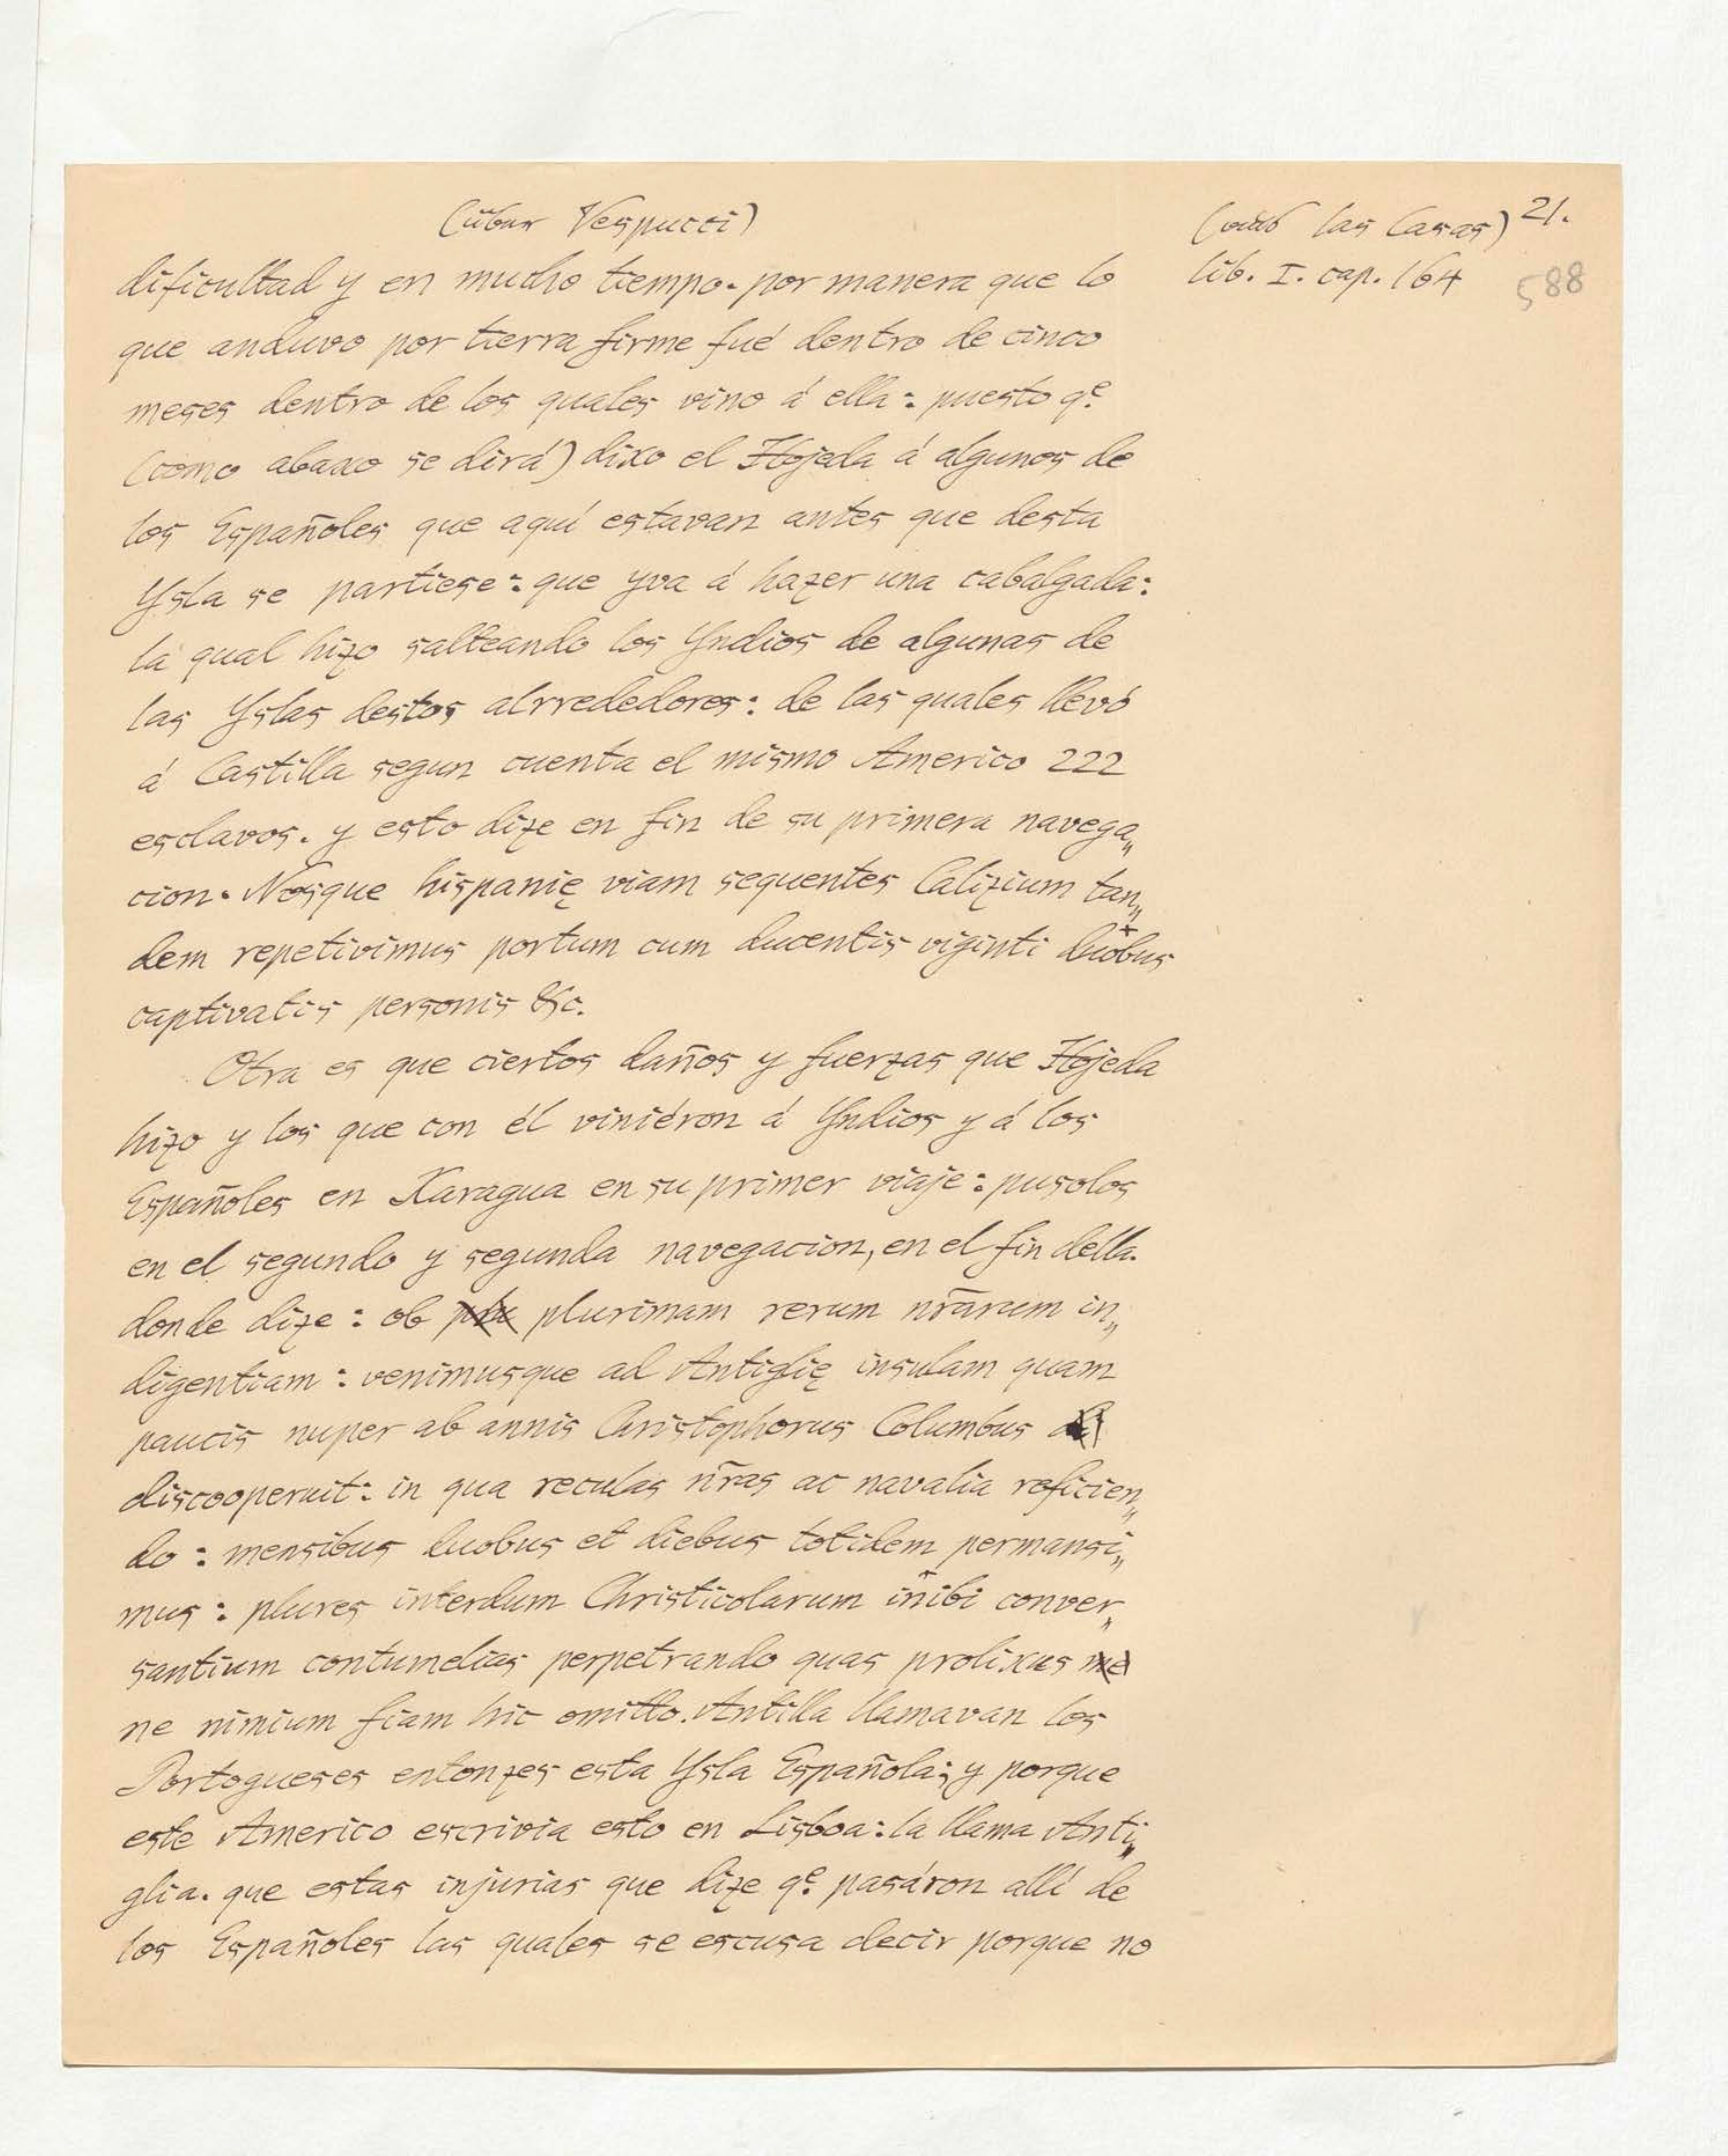 (über Vespucci)
(aus las Casas) 21.
lib. I. cap. 164
588
dificultad y en mucho tiempo. por manera que lo
que anduvo por tierra firme fué dentro de cinco
meses dentro de los quales vino á ella: puesto q.e
(como abaxo se dirá) dixo el Hojeda á algunos de
los Españoles que aquí estavan antes que desta
Ysla se partiese: que yva á hazer una cabalgada:
la qual hizo salteando los Yndios de algunas de
las Yslas destos alrrededores: de las quales llevó
á Castilla segun cuenta el mismo Americo 222
esclavos. y esto dize en fin de su primera navega„
cion. Nosque hispanię viam sequentes Calizium tan„
dem repetivimus portum cum ducentis viginti duobus
captivatis personis &c.
Otra es que ciertos daños y fuerzas que Hojeda
hizo y los que con él viniéron á Yndios y á los
Españoles en Xaragua en su primer viaje: pusolos
en el segundo y segunda navegacion, en el fin della.
donde dize: ob plurimam rerum nr̄arum in„
digentiam: venimusque ad Antiglię insulam quam
paucis nuper ab annis Christophorus Columbus
discooperuit: in qua reculas nr̄as ac navalia reficien„
do: mensibus duobus et diebus totidem permansi„
mus: plures interdum Christicolarum inibi conver„
santium contumelias perpetrando quas prolixus
ne nimium fiam hic omitto. Antilla llamavan los
Portogueses entonzes esta Ysla Española; y porque
este Americo escrivia esto en Lisboa: la llama Anti„
glia. que estas injurias que dize q.e pasáron allí de
los Españoles las quales se escusa decir porque no